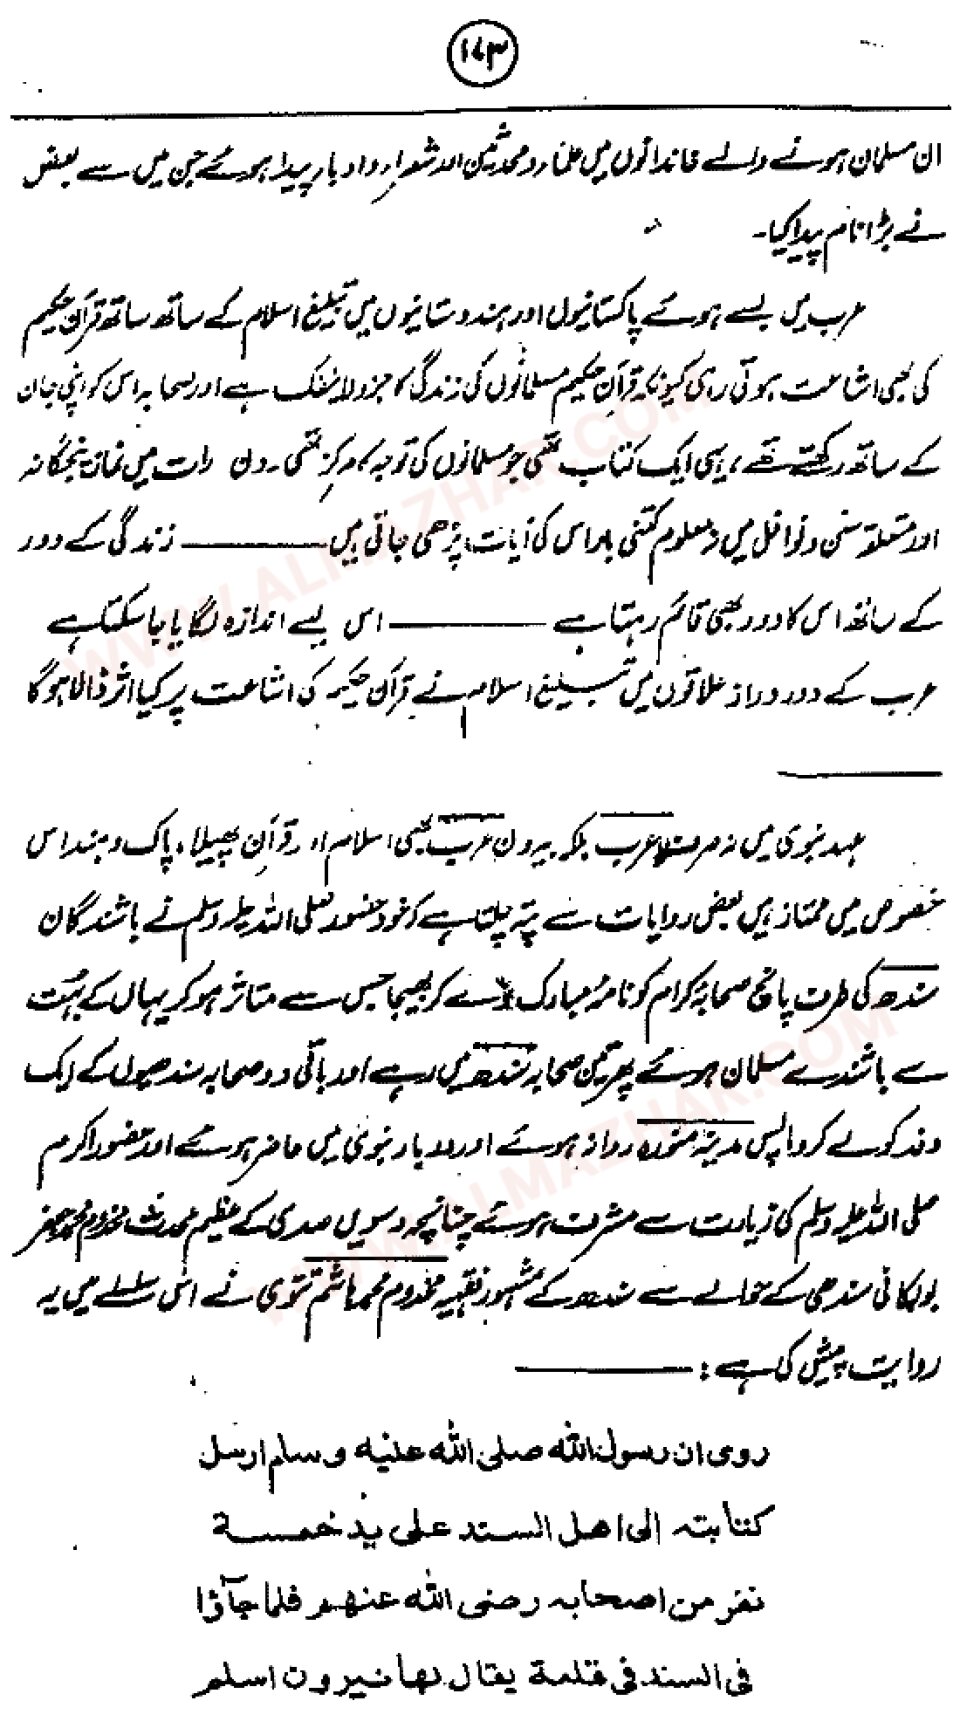 ۱۷۳
ان مسلمان ہونے والے خاندانوں میں علماء و محدثین اور شعراء و ادباء پیدا ہوئے جن میں سے بعض
نے بڑا نام پیدا کیا۔
عرب میں بسے ہوئے پاکستانیوں اور ہندوستانیوں میں تبلیغ اسلام کے ساتھ ساتھ قرآن حکیم
کی بھی اشاعت ہوتی رہی کیونکہ قرآن حکیم مسلمانوں کی زندگی کا جزو لاینفک ہے اور صحابہ اس کو اپنی جان
کے ساتھ رکھتے تھے، یہی ایک کتاب تھی جو مسلمانوں کی توجہ کا مرکز تھی۔ دن رات میں نماز پنجگانہ
اور متعلقہ سنن و نوافل میں نہ معلوم کتنی بار اس کی آیات پڑھی جاتی ہیں ——— زندگی کے دور
کے ساتھ اس کا دور بھی قائم رہتا ہے ——— اس لیے اندازہ لگایا جا سکتا ہے
عرب کے دور دراز علاقوں میں تبلیغ اسلام نے قرآن حکیم کی اشاعت پر کیا اثر ڈالا ہوگا
———
عہد نبوی میں نہ صرف عرب بلکہ بیرون عرب بھی اسلام اور قرآن پھیلا، پاک و ہند اس
خصوص میں ممتاز ہیں بعض روایات سے پتہ چلتا ہے کہ خود حضور صلی اللہ علیہ وسلم نے باشندگان
سندھ کی طرف پانچ صحابہ کرام کو نامۂ مبارک دے کر بھیجا جس سے متاثر ہو کر یہاں کے بہت
سے باشندے مسلمان ہوئے پھر تین صحابہ سندھ میں رہے اور باقی دو صحابہ سندھیوں کے ایک
وفد کو لے کر واپس مدینہ منورہ روانہ ہوئے اور دربار نبوی میں حاضر ہوئے اور حضور اکرم
صلی اللہ علیہ وسلم کی زیارت سے مشرف ہوئے چنانچہ دسویں صدی کے عظیم محدث مخدوم محمد جعفر
بوبکانی سندھی کے حوالے سے سندھ کے مشہور فقیہ مخدوم محمد ہاشم تتوی نے اس سلسلے میں یہ
روایت پیش کی ہے : ———
روی ان رسول اللہ صلی اللہ علیہ وسلم ارسل
کتابتہ الی اھل السند علی ید خمسة
نفر من اصحابہ رضی اللہ عنھم فلما جآؤا
فی السند فی قلعة یقال لھا نیرون اسلم
WWW.ALMAZHAR.COM
WWW.ALMAZHAR.COM